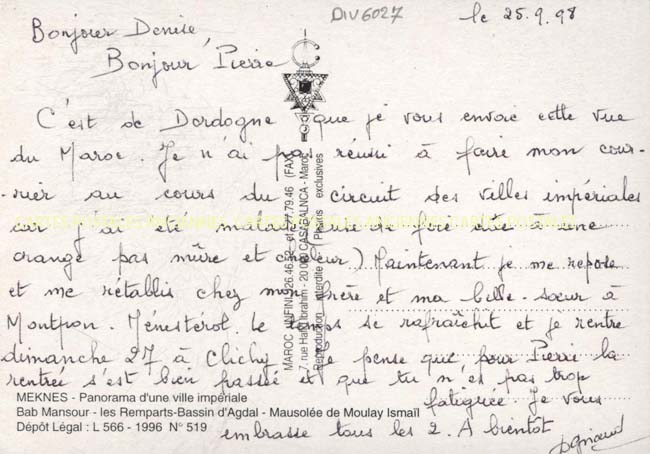 DIV6027
le 25.9.98
Bonjour Denise,
Bonjour Pierre
C'est de Dordogne que je vous envoie cette vue
du Maroc. Je n'ai pas réussi à faire mon cour-
-rier au cours du circuit des villes impériales
car j'ai été malade (crise de foie due à une
orange pas mûre et chaleur) Maintenant je me repose
et me rétablis chez mon frère et ma belle-soeur à
Montpon. Ménestérol. le temps se rafraîchit et je rentre
dimanche 27 à Clichy. Je pense que pour Pierre la
rentrée s'est bien passée et que tu n'es pas trop
fatiguée. Je vous
embrasse tous les 2. A bientôt
MEKNES - Panorama d'une ville impériale
Bab Mansour - les Remparts-Bassin d'Agdal - Mausolée de Moulay Ismaïl
Dépôt Légal : L 566 - 1996 N° 519
MAROC INFINI
7, rue Haj Brahim - 20 000 CASABALNCA - Maroc
Reproduction interdite - Photos exclusives